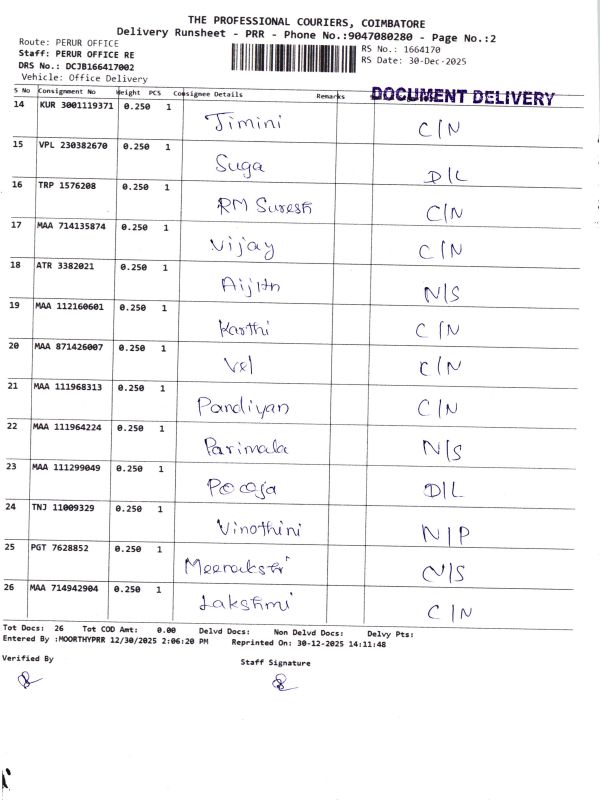 THE PROFESSIONAL COURIERS, COIMBATORE
Delivery Runsheet - PRR - Phone No.:9047080280 - Page No.:2
Route: PERUR OFFICE RS No.: 1664170
Staff: PERUR OFFICE RE RS Date: 30-Dec-2025
DRS No.: DCJB166417002
Vehicle: Office Delivery
S No Consignment No Weight PCS Consignee Details Remarks DOCUMENT DELIVERY
14 KUR 3001119371 0.250 1 Jimini C/N
15 VPL 230382670 0.250 1 Suga D/L
16 TRP 1576208 0.250 1 RM Suresh C/N
17 MAA 714135874 0.250 1 Vijay C/N
18 ATR 3382021 0.250 1 Aijith N/S
19 MAA 112160601 0.250 1 Karthi C/N
20 MAA 871426007 0.250 1 Vel C/N
21 MAA 111968313 0.250 1 Pandiyan C/N
22 MAA 111964224 0.250 1 Parimala N/S
23 MAA 111299049 0.250 1 Pooja D/L
24 TNJ 11009329 0.250 1 Vinothini N/P
25 PGT 7628852 0.250 1 Meenakshi N/S
26 MAA 714942904 0.250 1 Lakshmi C/N
Tot Docs: 26 Tot COD Amt: 0.00 Delvd Docs: Non Delvd Docs: Delvy Pts:
Entered By :MOORTHYPRR 12/30/2025 2:06:20 PM Reprinted On: 30-12-2025 14:11:48
Verified By Staff Signature